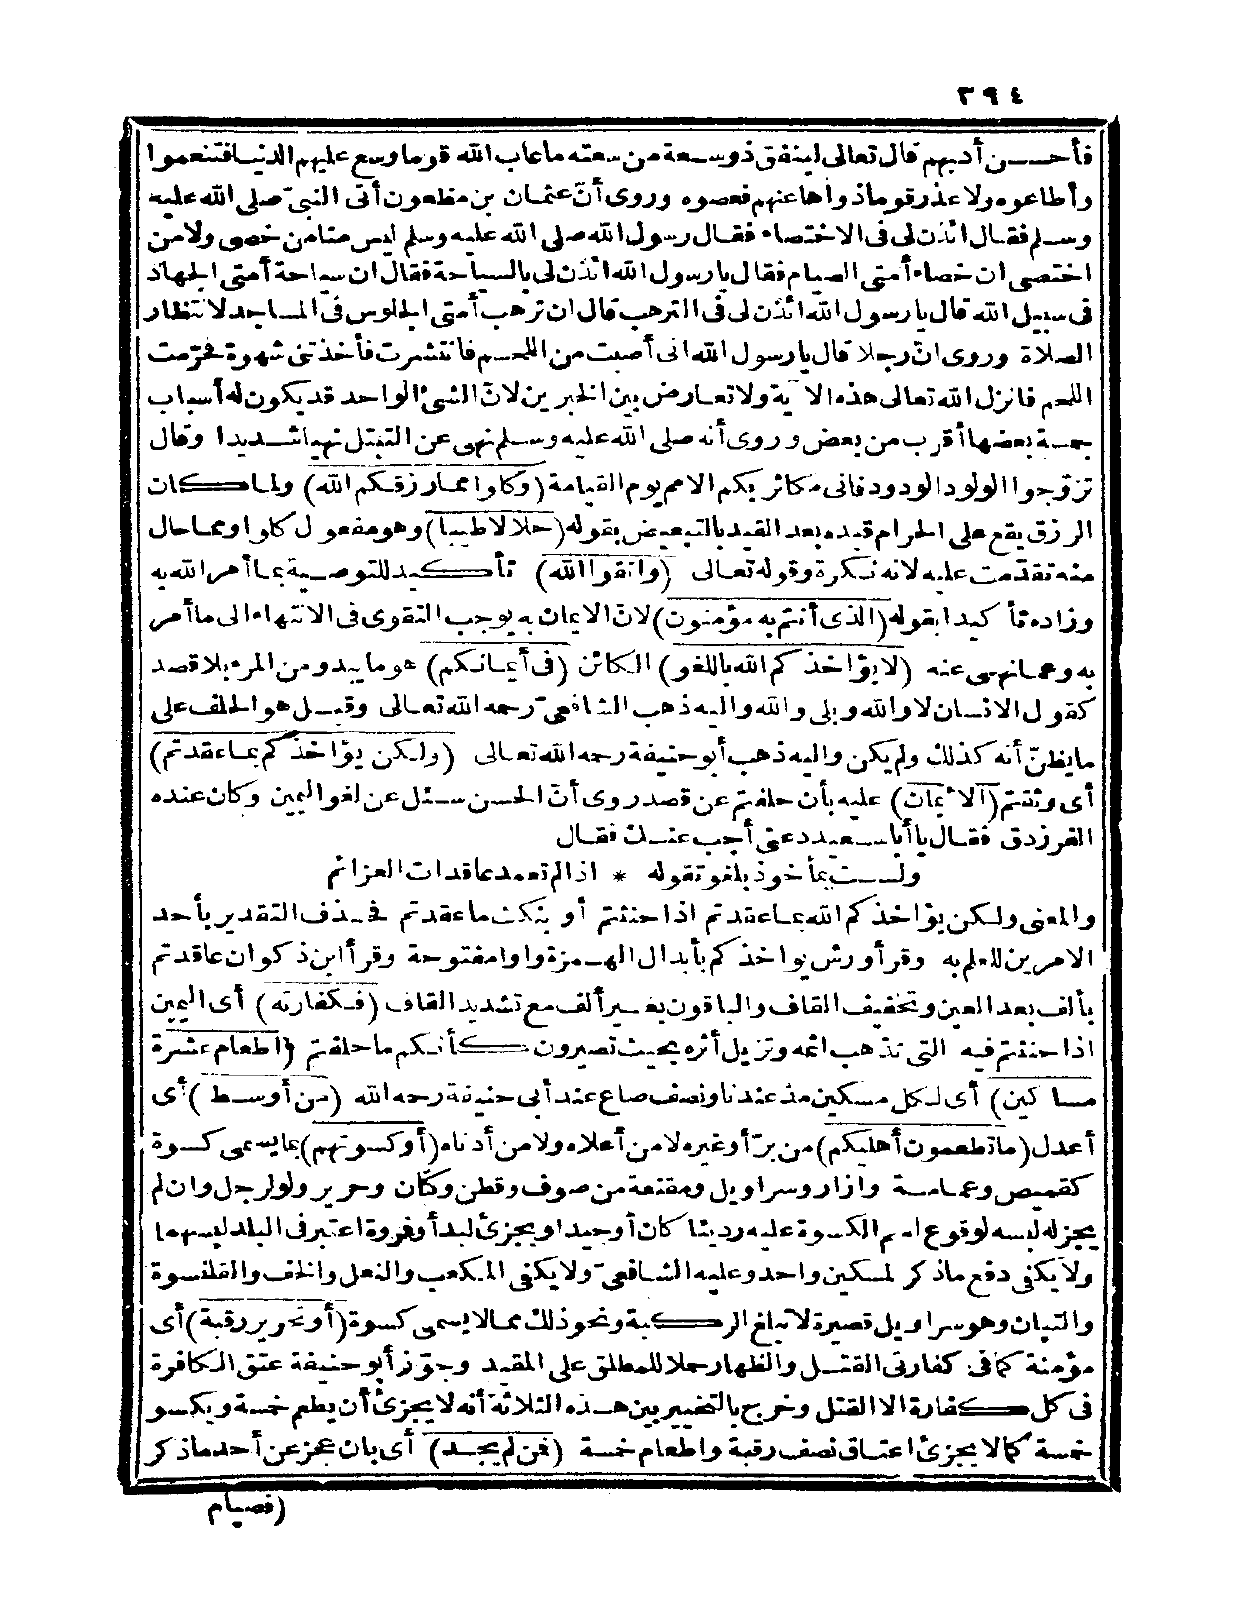 ٣٩٤
فأحسن أدبهم قال تعالى لينفق ذو سعة من سعته ماعاب الله قوما وسع عليهم الدنيا فتنعموا
وأطاعوه ولا عذر قوماذ واهاعنهم فعصوه وروى أنّ عثمان بن مظعون أتى النبيّ صلى الله عليه
وسلم فقال ائذن لى فى الاختصاء فقال رسول الله صلى الله عليه وسلم ليس منامن خصى ولامن
اختصى ان خصاء أمتى الصيام فقال يارسول الله ائذن لى بالسياحة فقال ان سياحة أمتى الجهاد
فى سبيل الله قال يارسول الله ائذن لى فى الترهب قال ان ترهب أمتى الجلوس فى المساجد لانتظار
الصلاة وروى انّ رجلا قال يارسول الله انى أصبت من اللحم فانتشرت فأخذتنى شهوة فحرّمت
اللحم فانزل الله تعالى هذه الآية ولا تعارض بين الخبرين لانّ الشئ الواحد قد يكون له أسباب
جمة بعضها أقرب من بعض وروى أنه صلى الله عليه وسلم نهى عن التبتل نهيا شديدا وقال
تزوّجوا الولود الودود فانى مكاثر بكم الامم يوم القيامة (وكلوا مما رزقكم الله) ولما كان
الرزق يقع على الحرام قيده بعد القيد بالتبعيض بقوله (حلالا طيبا) وهو مفعول كلوا ومما حال
منه تقدّمت عليه لانه نكرة وقوله تعالى (واتقوا الله) تأكيد للتوصية بما أمر الله به
وزاده تأكيدا بقوله (الذى أنتم به مؤمنون) لانّ الايمان به يوجب التقوى فى الانتهاء الى ما أمر
به وعما نهى عنه (لا يؤاخذكم الله باللغو) الكائن (فى أيمانكم) هو ما يبدو من المرء بلا قصد
كقول الانسان لا والله وبلى والله واليه ذهب الشافعىّ رحمه الله تعالى وقيل هو الحلف على
مايظنّ أنه كذلك ولم يكن واليه ذهب أبو حنيفة رحمه الله تعالى (ولكن يؤاخذكم بما عقدتم)
أى وثقتم (الأيمان) عليه بأن حلفتم عن قصد روى أنّ الحسن سئل عن لغو اليمين وكان عنده
الفرزدق فقال يا أبا سعيد دعنى أجب عنك فقال
ولست بمأخوذ بلغو تقوله * اذا لم تعمد عاقدات العزائم
والمعنى ولكن يؤاخذكم الله بما عقدتم اذا حنثتم أو بنكث ما عقدتم فحذف التقدير بأحد
الامرين للعلم به وقرأ ورش يواخذكم بأبدال الهمزة واوا مفتوحة وقرأ ابن ذكوان عاقدتم
بألف بعد العين وتخفيف القاف والباقون بغير ألف مع تشديد القاف (فكفارته) أى اليمين
اذا حنثتم فيه التى تذهب اثمه وتزيل أثره بحيث تصيرون كأنكم ما حلفتم (اطعام عشرة
مساكين) أى لكل مسكين مدّ عندنا ونصف صاع عند أبى حنيفة رحمه الله (من أوسط) أى
أعدل (ما تطعمون أهليكم) من برّ أو غيره لا من أعلاه ولا من أدناه (أو كسوتهم) بما يسمى كسوة
كقميص وعمامة وازار وسراويل ومقنعة من صوف وقطن وكتّان وحرير ولو لرجل وان لم
يجز له لبسه لوقوع اسم الكسوة عليه رديئا كان أو جيدا ويجزئ لبد أو فروة اعتبر فى البلد لبسهما
ولا يكفى دفع ماذكر لمسكين واحد وعليه الشافعىّ ولا يكفى المكعب والنعل والخف والقلنسوة
والتبان وهو سراويل قصيرة لا تبلغ الركبة ونحو ذلك مما لا يسمى كسوة (أو تحرير رقبة) أى
مؤمنة كما فى كفارتى القتل والظهار حملا للمطلق على المقيد وجوّز أبو حنيفة عتق الكافرة
فى كل كفارة الا القتل وخرج بالتخيير بين هذه الثلاثة أنه لا يجزئ أن يطعم خمسة ويكسو
خمسة كما لا يجزئ اعتاق نصف رقبة واطعام خمسة (فمن لم يجد) أى بان عجز عن أحد ماذكر
(فصيام